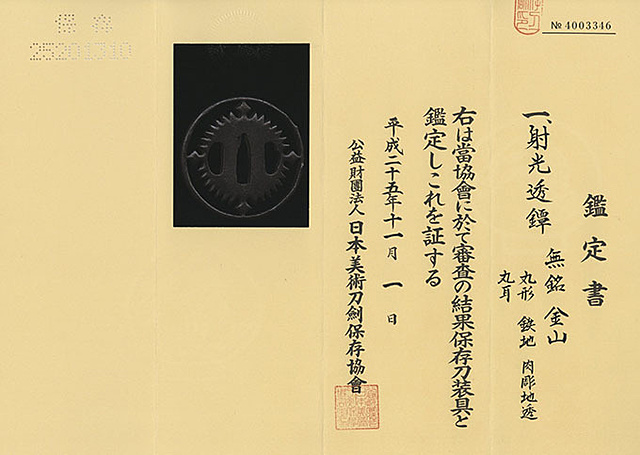 № 4003346
鑑定書
一、射光透鐔 無銘 金山
丸形 鉄地 肉彫地透
丸耳
右は當協會に於て審査の結果保存刀装具と
鑑定しこれを証する
平成二十五年十一月一日
公益財團法人 日本美術刀剣保存協會
保存